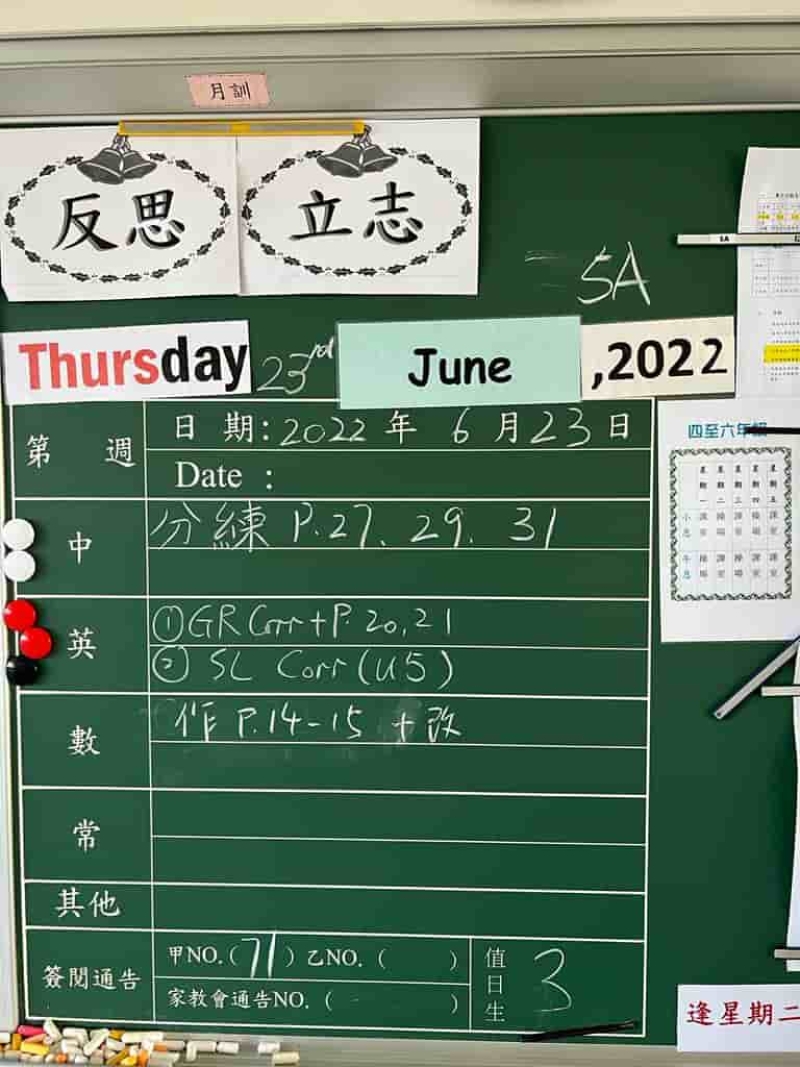 月訓
反思 立志
5A
Thursday 23rd June ,2022
第 週 日 期: 2022 年 6 月 23 日
Date :
中 分練 P.27、29、31
英 ①GR Corr + P. 20,21
② SL Corr (U5)
數 作 P.14-15 + 改
常
其他
簽閱通告 甲NO.(71) 乙NO. ( )
家教會通告NO. ( )
值日生 3
四至六年級
星期一 星期二 星期三 星期四 星期五
逢星期二